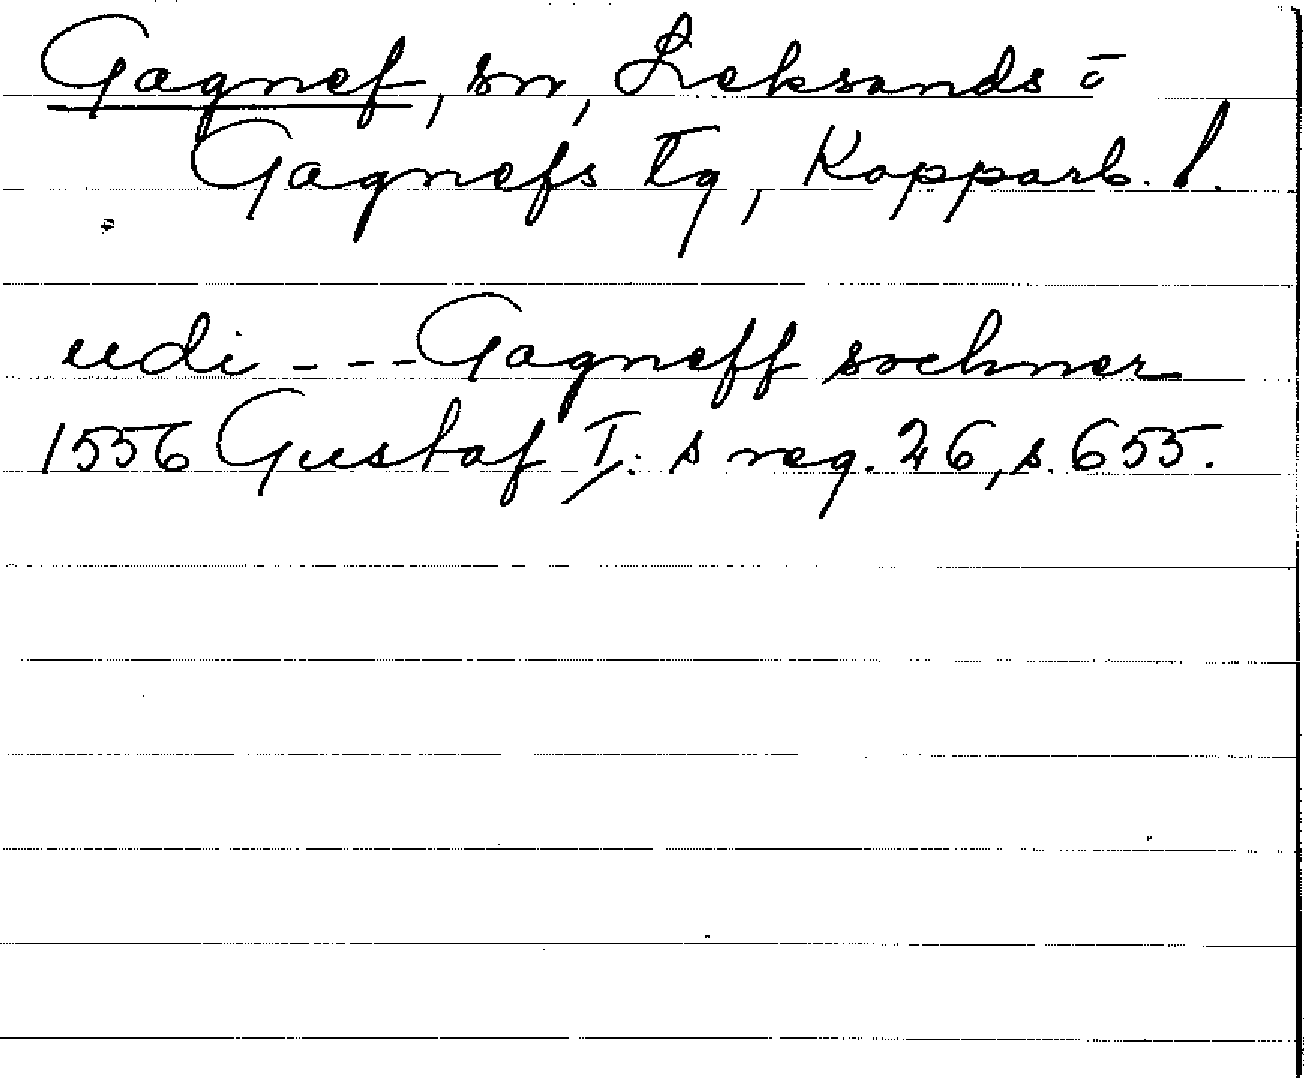 Gagnef, sn, Leksands o
Gagnefs tg, Kopparb. l.
udi - - - Gagneff sochner
1556 Gustaf I: s reg. 26, s. 655.